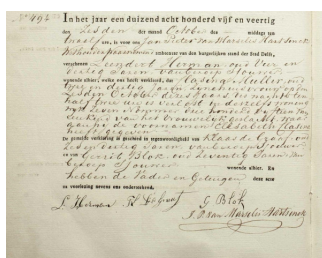 No. 494.
In het jaar een duizend acht honderd vijf en veertig
den Zesden der maand October des middags ten
twaalf ure, is voor ons Jan Pieter van Marselis Hartsinck
Wethouder ambtenaar van den burgerlijken stand der Stad Delft,
verschenen Leendert Herman oud Vier en
dertig Jaren, van beroep Stouwer
wonende alhier, welke ons heeft verklaard, dat Klasina Mulder oud
en dertig Jaren
Zesden October dezes Jaars des nachts ten
half twee ure is verlost in deszelfs woning
kind van het vrouwelijk geslacht, waar
aan de voornamen Elisabeth
heeft gegeven
De gemelde verklaring is geschied in tegenwoordigheid van Klaas de Graaf oud
Zes en dertig Jaren, van beroep
en van Gerrit Blok oud Zeventig Jaren van
beroep Stouwer wonende alhier. En
hebben de Vader en Getuigen deze acte
na voorlezing nevens ons onderteekend.
L. Herman K. de Graaf G Blok
J. P. van Marselis Hartsinck